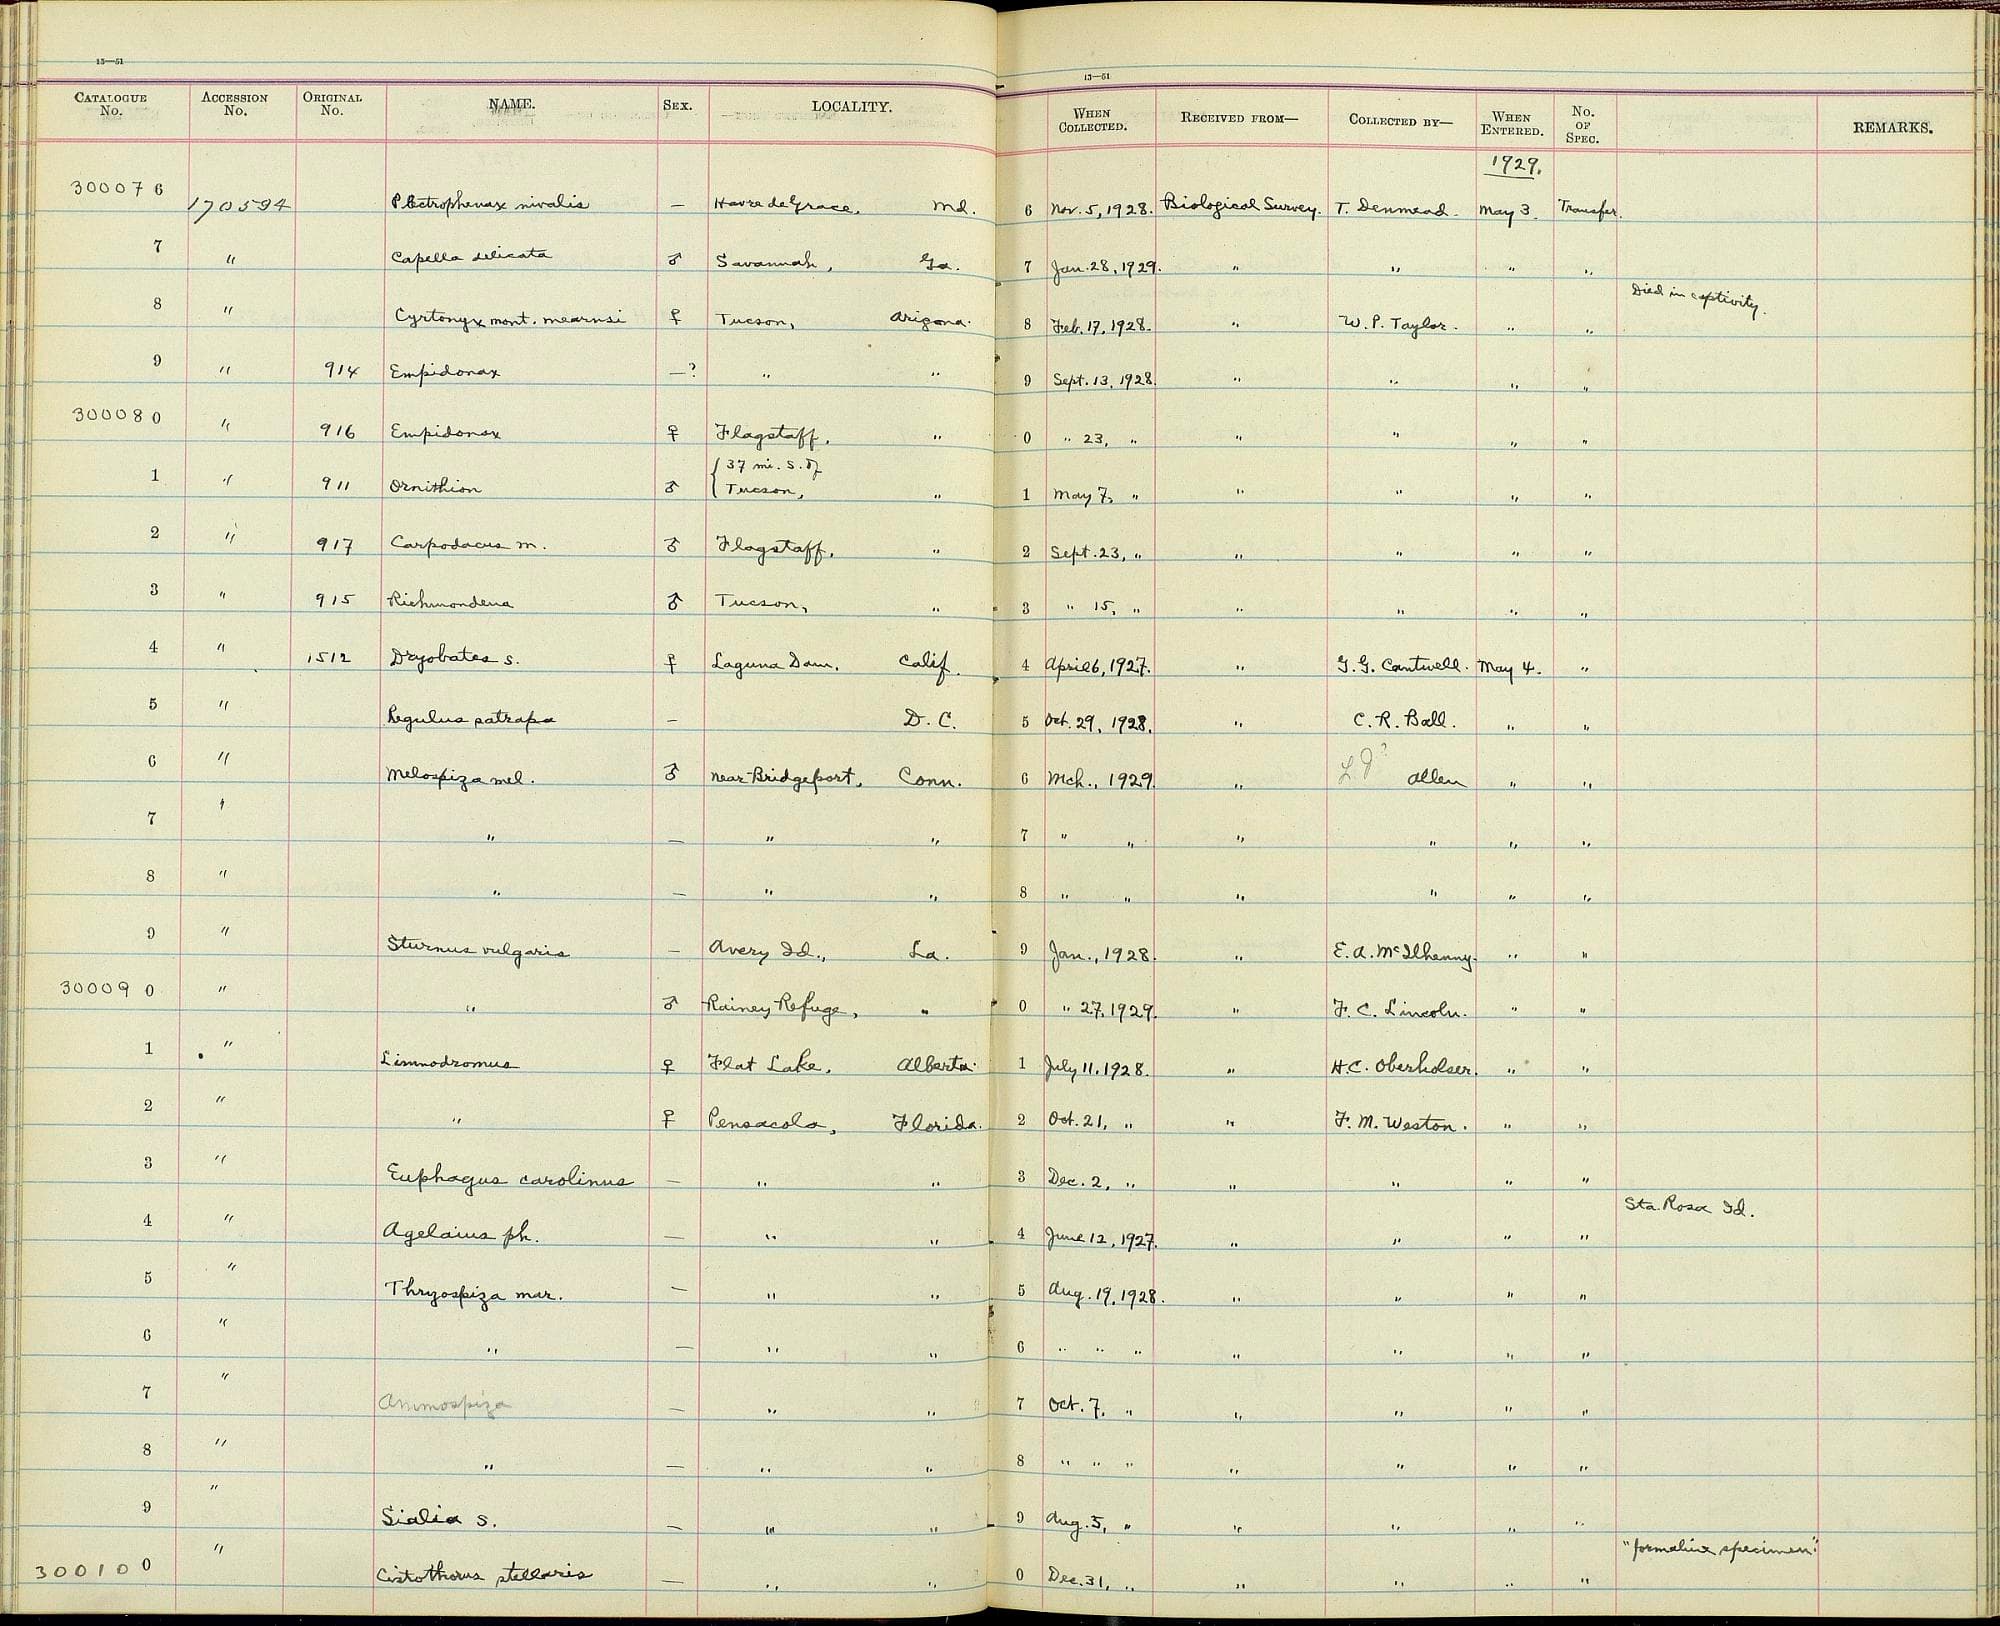 13—51
13—51
CATALOGUE No. ACCESSION No. ORIGINAL No. NAME. SEX. LOCALITY. WHEN COLLECTED. RECEIVED FROM— COLLECTED BY— WHEN ENTERED. No. OF SPEC. REMARKS.
1929.
300076 170594 Plectrophenax nivalis — Havre de Grace, Md. 6 Nov. 5, 1928. Biological Survey. T. Denmead. May 3. Transfer.
7 " Capella delicata ♂ Savannah, Ga. 7 Jan. 28, 1929. " " " "
8 " Cyrtonyx mont. mearnsi ♀ Tucson, Arizona. 8 Feb. 17, 1928. " W. P. Taylor. " " Died in captivity.
9 " 914 Empidonax —? " " 9 Sept. 13, 1928. " " " "
300080 " 916 Empidonax ♀ Flagstaff, " 0 " 23, " " " " "
1 " 911 Ornithion ♂ { 37 mi. S. of Tucson, " 1 May 7, " " " " "
2 " 917 Carpodacus m. ♂ Flagstaff, " 2 Sept. 23, " " " " "
3 " 915 Richmondena ♂ Tucson, " 3 " 15, " " " " "
4 " 1512 Dryobates s. ♀ Laguna Dam, Calif. 4 April 6, 1927. " G. G. Cantwell. May 4. "
5 " Regulus satrapa — D. C. 5 Oct. 29, 1928. " C. R. Ball. " "
6 " Melospiza mel. ♂ near Bridgeport, Conn. 6 Mch., 1929. " Allen " "
7 " " — " " 7 " " " " " "
8 " " — " " 8 " " " " " "
9 " Sturnus vulgaris — Avery Id., La. 9 Jan., 1928. " E. A. McIlhenny. " "
300090 " " ♂ Rainey Refuge, " 0 " 27, 1929. " F. C. Lincoln. " "
1 " Limnodromus ♀ Flat Lake, Alberta. 1 July 11, 1928. " H. C. Oberholser. " "
2 " " ♀ Pensacola, Florida. 2 Oct. 21, " " F. M. Weston. " "
3 " Euphagus carolinus — " " 3 Dec. 2, " " " " "
4 " Agelaius ph. — " " 4 June 12, 1927. " " " " Sta. Rosa Id.
5 " Thryospiza mar. — " " 5 Aug. 19, 1928. " " " "
6 " " — " " 6 " " " " " " "
7 " Ammospiza — " " 7 Oct. 7, " " " " "
8 " " — " " 8 " " " " " " "
9 " Sialia s. — " " 9 Aug. 5, " " " " "
300100 " Cistothorus stellaris — " " 0 Dec. 31, " " " " " "formaline specimen"